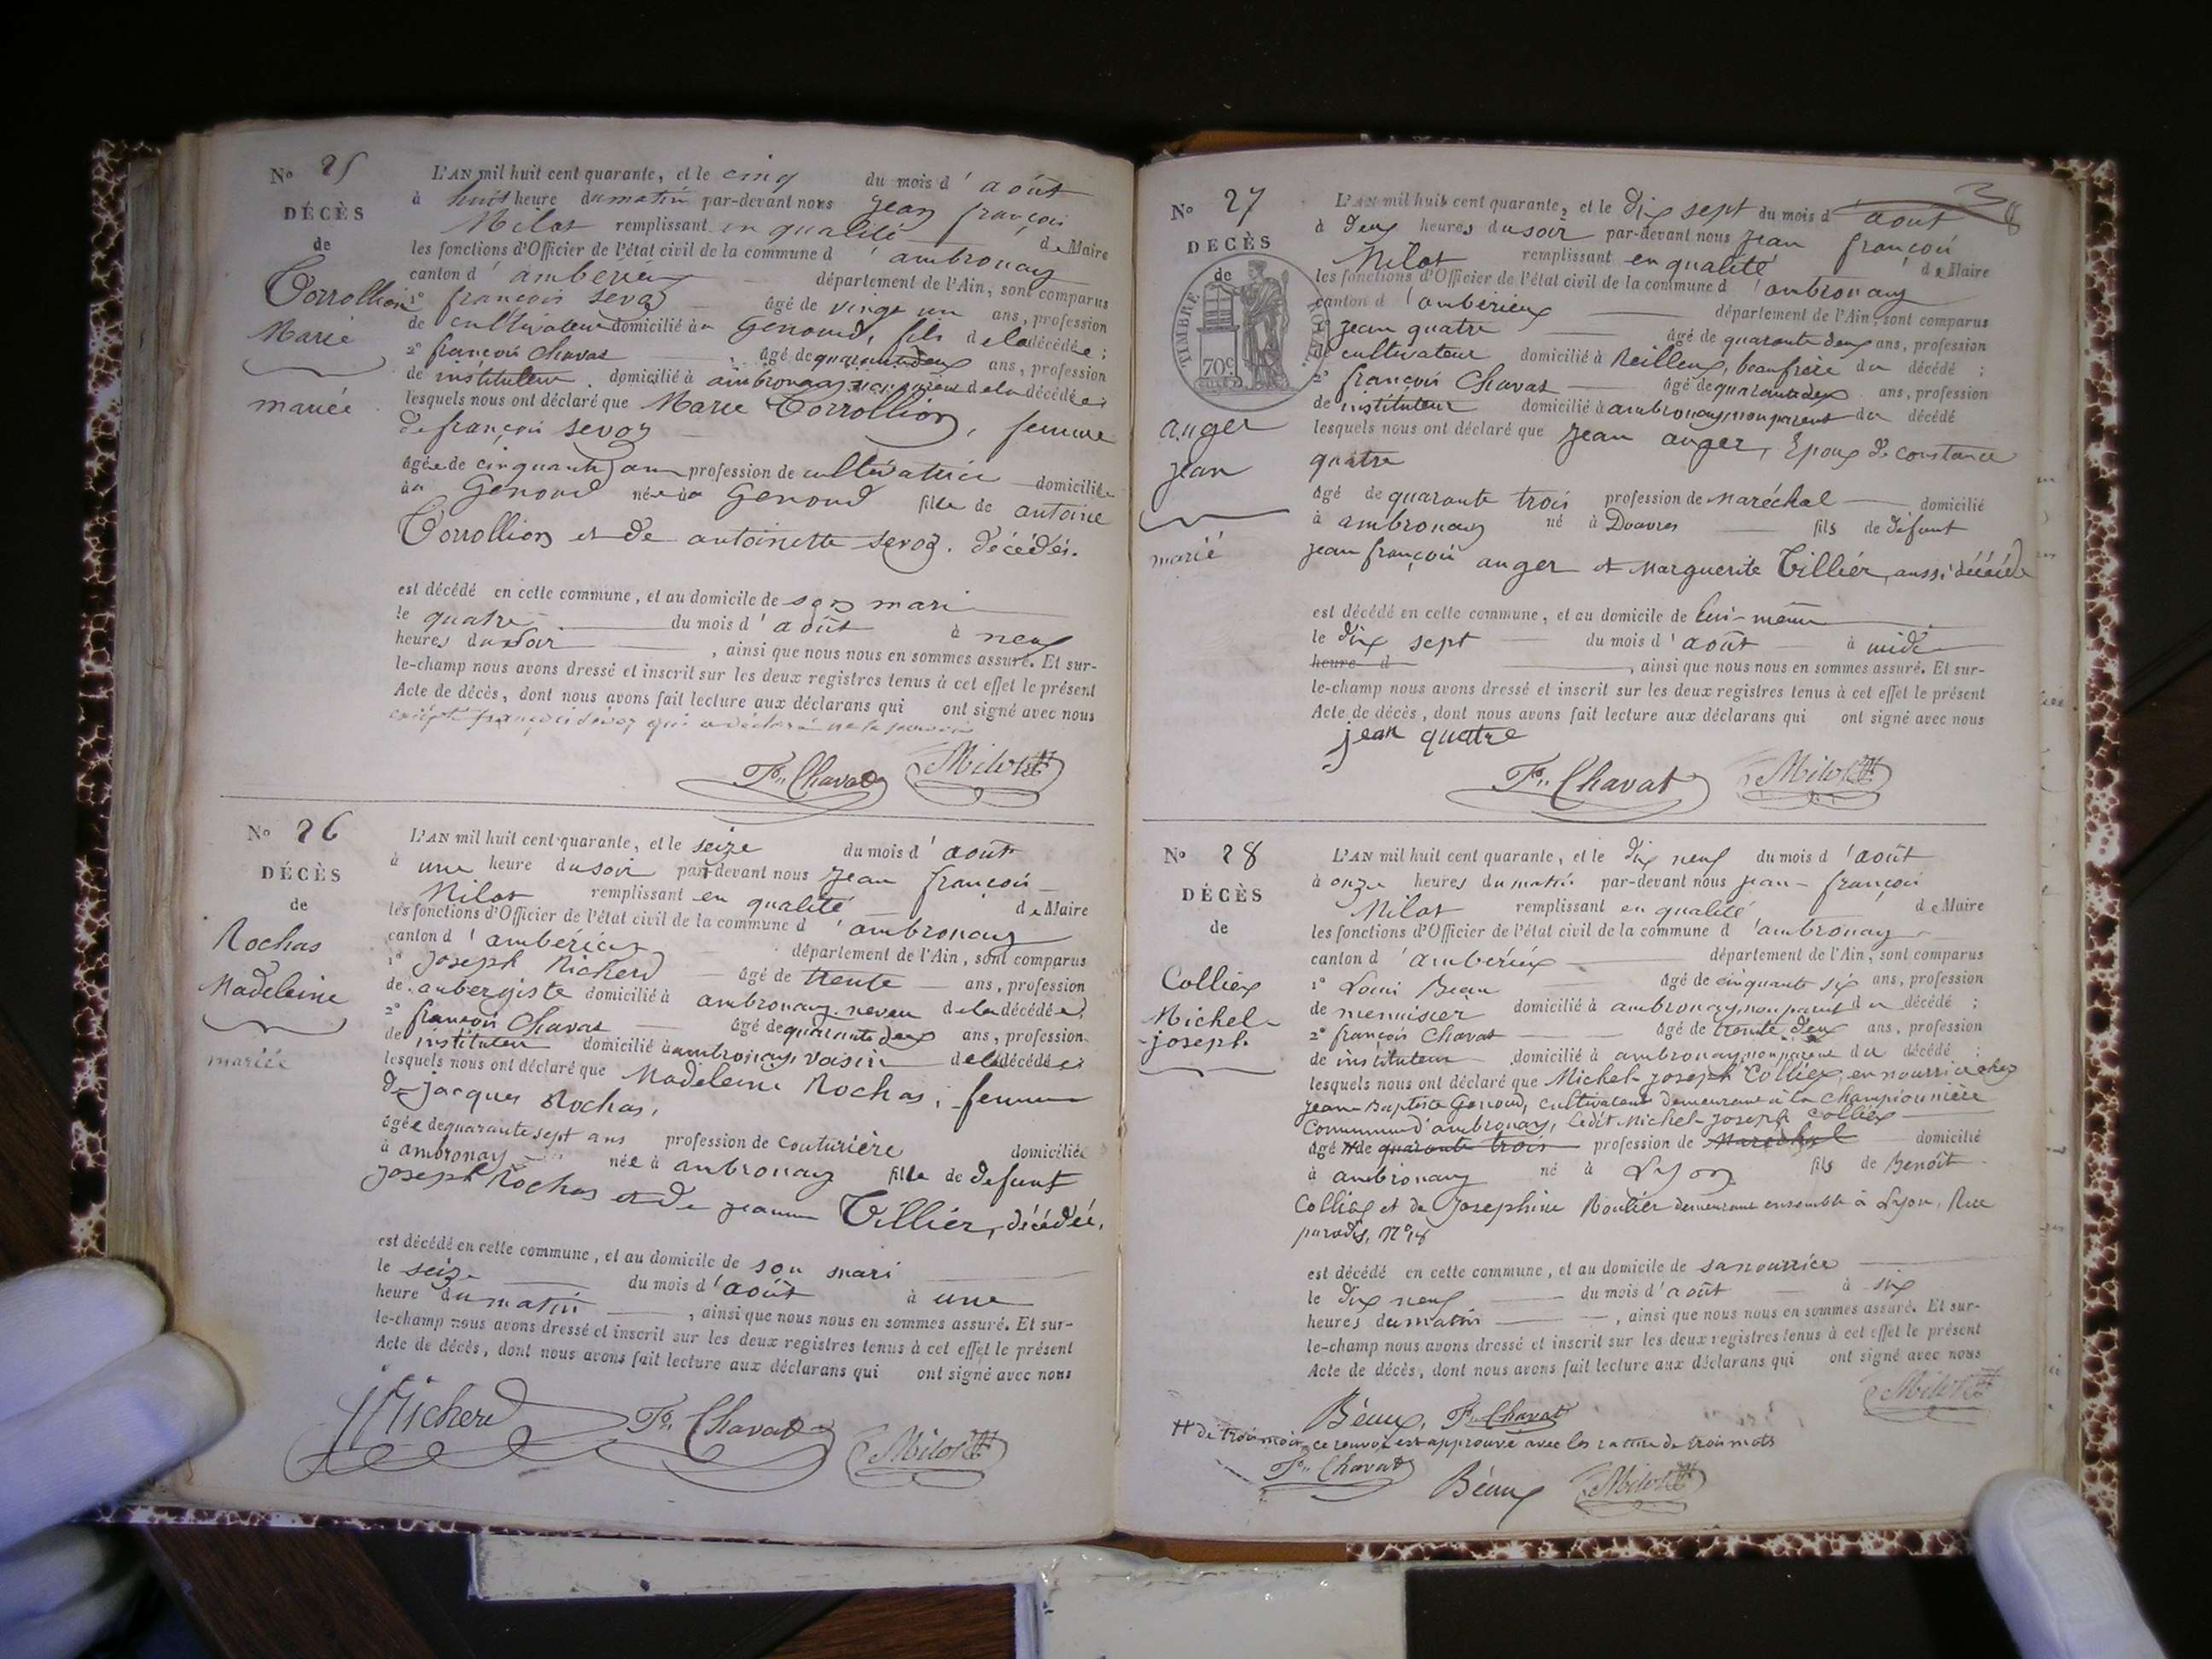 No 25
DÉCÈS
de
Corrollion
Marie
mariée
L'AN mil huit cent quarante, et le cinq du mois d'août
à huit heure du matin par-devant nous Jean françois
Milot remplissant en qualité de Maire
les fonctions d'Officier de l'état civil de la commune d'ambronay
canton d'ambérieux département de l'Ain, sont comparus
1° françois Sevoz âgé de vingt un ans, profession
de cultivateur domicilié à Genoud, fils de la décédée;
2° françois Chavat âgé de quarante deux ans, profession
de instituteur domicilié à ambronay, de la décédée;
lesquels nous ont déclaré que Marie Corrollion, femme
de françois Sevoz
âgée de cinquante ans profession de cultivatrice domiciliée
à Genoud née à Genoud fille de antoine
Corrollion et de antoinette Sevoz, décédés.
est décédé en cette commune, et au domicile de son mari
le quatre du mois d'août à neuf
heures du soir, ainsi que nous nous en sommes assuré. Et sur-
le-champ nous avons dressé et inscrit sur les deux registres tenus à cet effet le présent
Acte de décès, dont nous avons fait lecture aux déclarans qui ont signé avec nous
excepté françois Sevoz qui a déclaré ne le pouvoir
Fs. Chavat Milot
No 26
DÉCÈS
de
Rochas
Madeleine
mariée
L'AN mil huit cent quarante, et le seize du mois d'août
à une heure du soir par-devant nous Jean françois
Milot remplissant en qualité de Maire
les fonctions d'Officier de l'état civil de la commune d'ambronay
canton d'ambérieux département de l'Ain, sont comparus
1° Joseph Richerd âgé de trente ans, profession
de aubergiste domicilié à ambronay, neveu de la décédée;
2° françois Chavat âgé de quarante deux ans, profession
de instituteur domicilié à ambronay, voisin de la décédée;
lesquels nous ont déclaré que Madeleine Rochas, femme
de Jacques Rochas,
âgée de quarante sept ans profession de couturière domiciliée
à ambronay née à ambronay fille de défunt
Joseph Rochas et de jeanne Tillier, décédée,
est décédé en cette commune, et au domicile de son mari
le seize du mois d'août à une
heure du matin, ainsi que nous nous en sommes assuré. Et sur-
le-champ nous avons dressé et inscrit sur les deux registres tenus à cet effet le présent
Acte de décès, dont nous avons fait lecture aux déclarans qui ont signé avec nous
Richerd Fs. Chavat Milot
No 27
DÉCÈS
de
TIMBRE ROYAL
70c
anger
jean
marié
L'AN mil huit cent quarante, et le dix sept du mois d'aout
à deux heures du soir par-devant nous Jean françois
Milot remplissant en qualité de Maire
les fonctions d'Officier de l'état civil de la commune d'ambronay
canton d'ambérieux département de l'Ain, sont comparus
1° Jean quatre âgé de quarante deux ans, profession
de cultivateur domicilié à Reilleux, beaufrère du décédé;
2° françois Chavat âgé de quarante deux ans, profession
de instituteur domicilié à ambronay, non parent du décédé
lesquels nous ont déclaré que Jean anger, Epoux de constance
quatre
âgé de quarante trois profession de Maréchal domicilié
à ambronay né à Douvres fils de défunt
jean françois anger et Marguerite Tillier, aussi décédée
est décédé en cette commune, et au domicile de lui-même
le dix sept du mois d'août à midi
heure d, ainsi que nous nous en sommes assuré. Et sur-
le-champ nous avons dressé et inscrit sur les deux registres tenus à cet effet le présent
Acte de décès, dont nous avons fait lecture aux déclarans qui ont signé avec nous
jean quatre
Fs. Chavat Milot
No 28
DÉCÈS
de
Colliex
Michel-
joseph.
L'AN mil huit cent quarante, et le dix neuf du mois d'août
à onze heures du matin par-devant nous jean-françois
Milot remplissant en qualité de Maire
les fonctions d'Officier de l'état civil de la commune d'ambronay
canton d'ambérieux département de l'Ain, sont comparus
1° Louis Beau âgé de cinquante six ans, profession
de menuisier domicilié à ambronay, non parent du décédé;
2° françois Chavat âgé de trente deux ans, profession
de instituteur domicilié à ambronay, non parent du décédé;
lesquels nous ont déclaré que Michel-joseph Colliex, en nourrice chez
jean-Baptiste Genoud, cultivateur demeurant à la Championnière
Commune d'ambronay, ledit Michel-Joseph Colliex
âgé # de quarante trois profession de Maréchal domicilié
à ambronay né à Lyon fils de Benoît
Colliex et de Josephine Roulier demeurant ensemble à Lyon, Rue
paradis, N° 18
est décédé en cette commune, et au domicile de sa nourrice
le dix neuf du mois d'août à six
heures du matin, ainsi que nous nous en sommes assuré. Et sur-
le-champ nous avons dressé et inscrit sur les deux registres tenus à cet effet le présent
Acte de décès, dont nous avons fait lecture aux déclarans qui ont signé avec nous
Béaux, Fs. Chavat Milot
# de trois mois, ce renvoi est approuvé avec la rature de trois mots
Fs. Chavat Béaux Milot